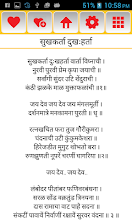 83% 10:58 PM
सुखकर्ता दुःखहर्ता
सुखकर्ता दुःखहर्ता वार्ता विघ्नाची ।
नुरवी पुरवी प्रेम कृपा जयाची ॥
सर्वांगी सुंदर उटि शेंदुराची ।
कंठी झळके माळ मुक्ताफळांची ॥१॥
जय देव जय देव जय मंगलमूर्ती ।
दर्शनमात्रे मनकामना पुरती ॥ धृ ॥
रत्नखचित फरा तुज गौरीकुमरा ।
चंदनाची उटी कुंकुमकेशरा ॥
हिरेजडीत मुगुट शोभतो बरा ।
रुणझुणती नूपुरे चरणी घागरिया ॥२॥
जय देव जय देव...
लंबोदर पीतांबर फणिवरबंधना ।
सरळ सोंड वक्रतुंड त्रिनयना ॥
दास रामाचा वाट पाहे सदना ।